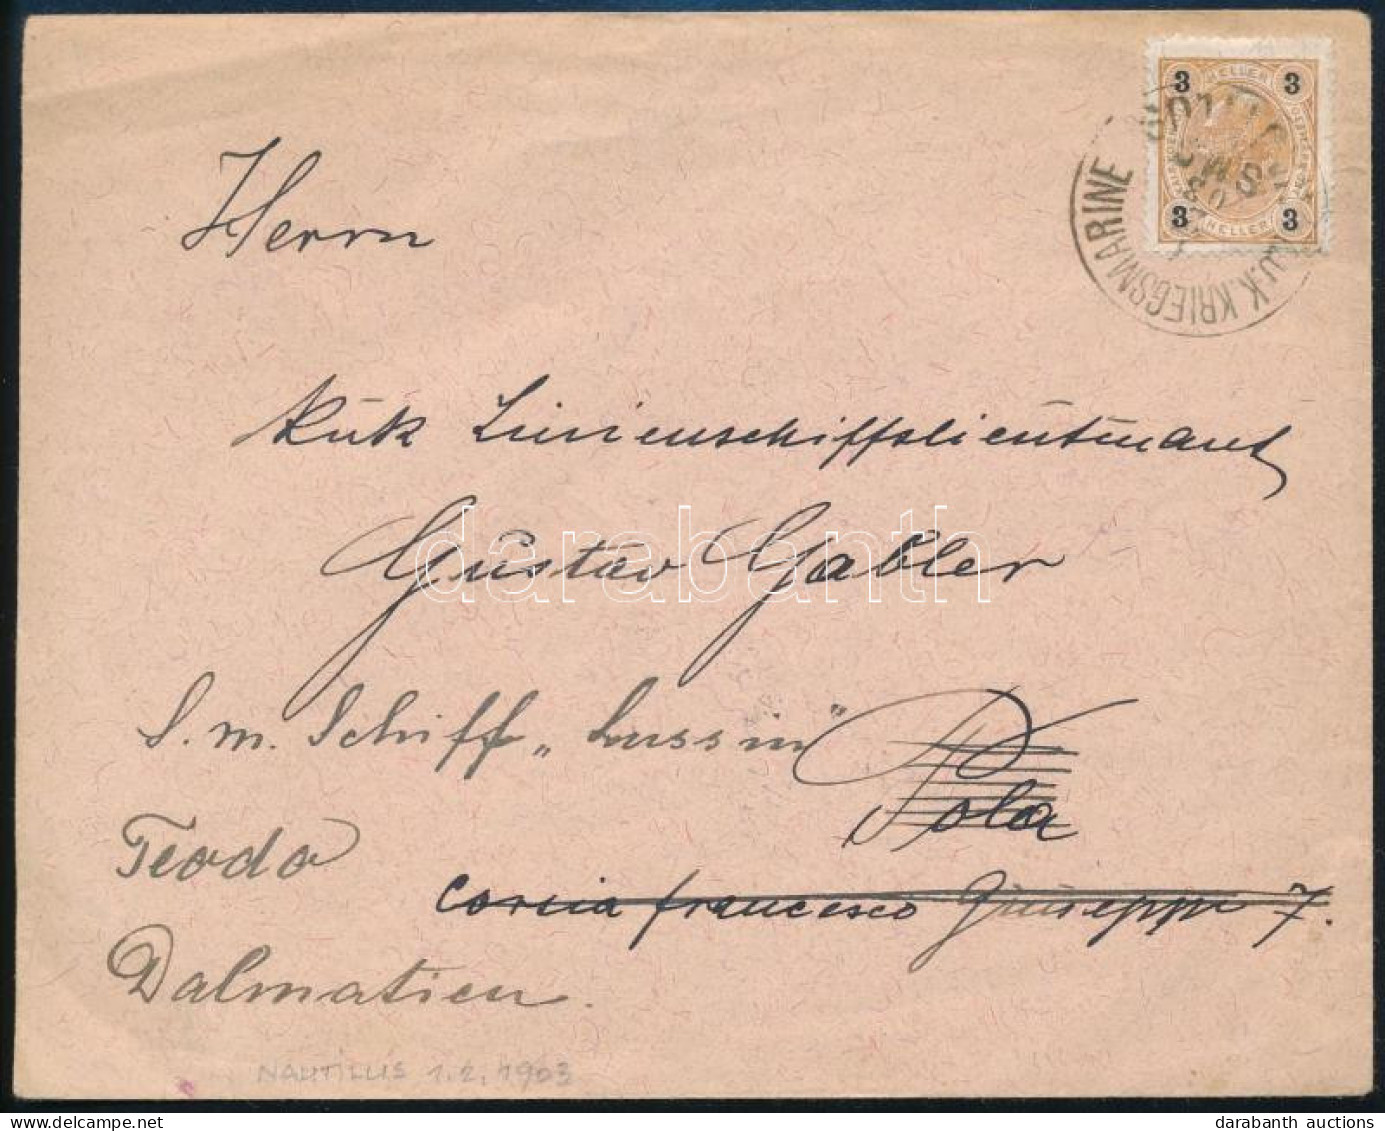 3 HELLER 3
3 HELLER 3
K.U.K. KRIEGSMARINE
Herrn
kuk Linienschiffslieutenant
Gustav Gabler
S. M. Schiff „Lussin"
Pola
Teodo
francesco Giuseppe 7.
Dalmatien.
NAUTILUS 1.2.1903
darabanth
darabanth auctions